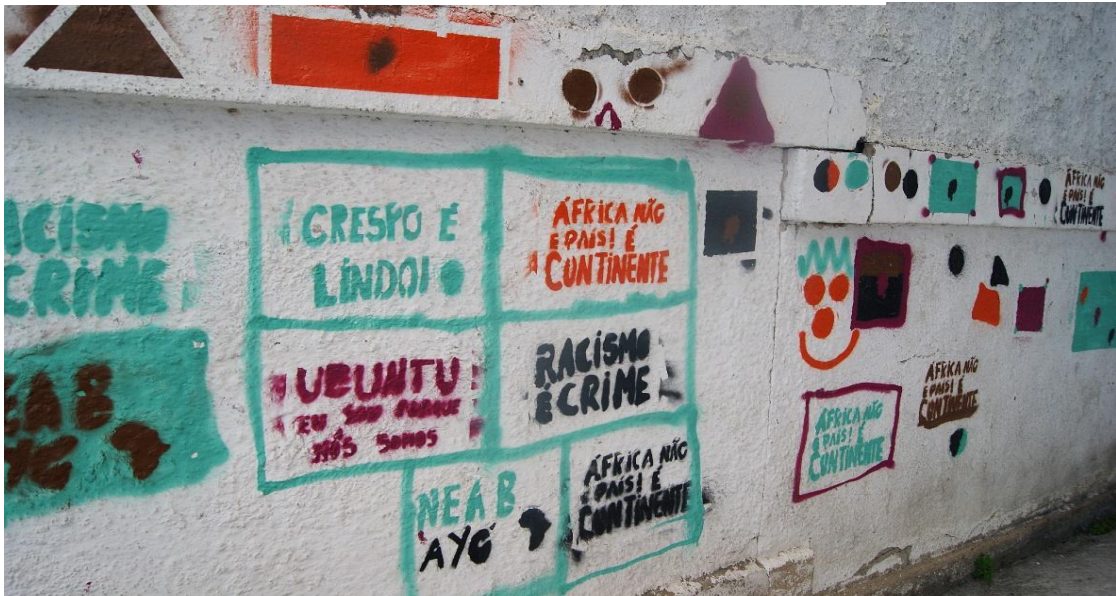 RACISMO
CRIME
CRESPO É
LINDO!
ÁFRICA NÃO
É PAÍS! É
CONTINENTE
UBUNTU
EU SOU PORQUE
NÓS SOMOS
RACISMO
É CRIME
NEAB
AYÓ
ÁFRICA NÃO
É PAÍS! É
CONTINENTE
EAB
ÁFRICA NÃO
É PAÍS! É
CONTINENTE
ÁFRICA NÃO
É PAÍS! É
CONTINENTE
ÁFRICA NÃO
É PAÍS! É
CONTINENTE